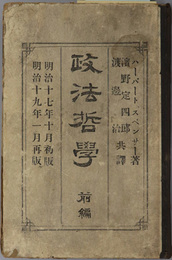 ハーバートスペンサー著
濱野定四郎
渡邊治 共譯
政法哲學 前編
明治十七年十月初版
明治十九年一月再版